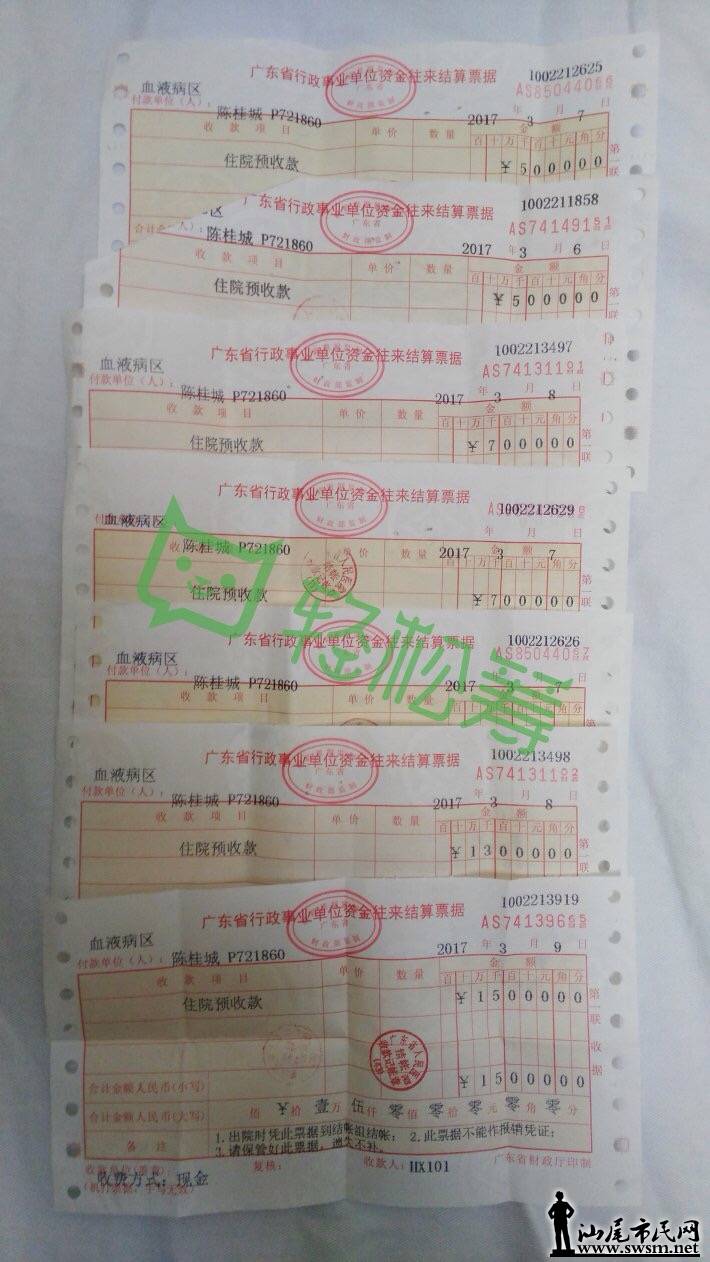 广东省行政事业单位资金往来结算票据
1002212625
血液病区
付款单位(人):
陈桂城 P721860
2017 年 3 月 7 日
收款项目 单价 数量 金额
百十万千百十元角分
住院预收款 ¥500000
第一联
广东省行政事业单位资金往来结算票据
1002211858
陈桂城 P721860
2017 年 3 月 6 日
收款项目 单价 数量 金额
百十万千百十元角分
住院预收款 ¥500000
第一联
广东省行政事业单位资金往来结算票据
1002213497
血液病区
付款单位(人):
陈桂城 P721860
2017 年 3 月 8 日
收款项目 单价 数量 金额
百十万千百十元角分
住院预收款 ¥700000
第一联
广东省行政事业单位资金往来结算票据
1002212629
血液病区
陈桂城 P721860
2017 年 3 月 7 日
单价 数量 金额
百十万千百十元角分
住院预收款 ¥700000
第一联
轻松筹
广东省行政事业单位资金往来结算票据
1002212626
血液病区
付款单位(人):
陈桂城 P721860
2017 年 3 月 7 日
收款项目 单价 数量 金额
广东省行政事业单位资金往来结算票据
1002213498
血液病区
付款单位(人):
陈桂城 P721860
2017 年 3 月 8 日
收款项目 单价 数量 金额
百十万千百十元角分
住院预收款 ¥1300000
第一联
广东省行政事业单位资金往来结算票据
1002213919
血液病区
付款单位(人):
陈桂城 P721860
2017 年 3 月 9 日
收款项目 单价 数量 金额
百十万千百十元角分
住院预收款 ¥1500000
第一联 收据
合计金额人民币(小写) ¥1500000
合计金额人民币(大写) 佰 ¥ 拾 壹 万 伍 仟 零 佰 零 拾 零 元 零 角 零 分
备注
1.出院时凭此票据到结帐组结帐; 2.此票据不能作报销凭证;
3.请保管好此票据,遗失不补。
复核: 收款人: HX101 广东省财政厅印制
收费方式: 现金
汕尾市民网
www.swsm.net